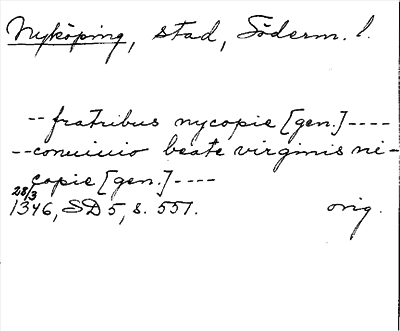 Nyköping, stad, Söderm. l.
-- fratribus nycopie [gen.] ----
-- conuiuio beate virginis ni-
copie [gen.] ----
28/3
1346, SD 5, s. 551. orig.